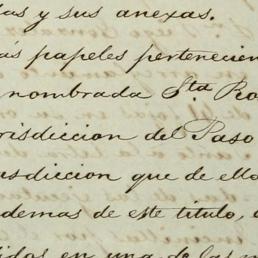 las y sus anexas.
ás papeles pertenecien
nombrada Sta Ro
risdiccion del Paso
risdiccion que de ello
demas de este titulo,
idos en una de las